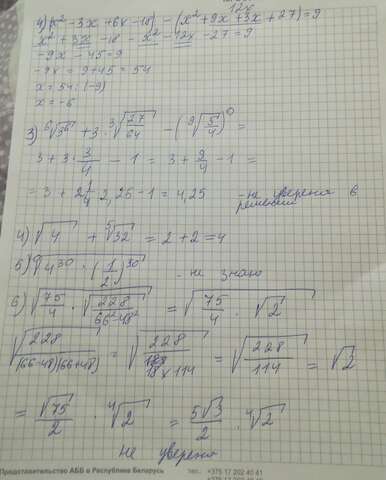 12x
4) (x² - 3x + 6x - 18) - (x² + 9x + 3x + 27) = 9
x² + 3x - 18 - x² - 12x - 27 = 9
-9x - 45 = 9
-9x = 9 + 45 = 54
x = 54 : (-9)
x = -6
3) ⁶√3⁶ + 3 · ³√(27/64) - (⁹√(5/4))⁰ =
3 + 3 · 3/4 - 1 = 3 + 9/4 - 1 =
= 3 + 2 1/4 2,25 - 1 = 4,25 - не уверена в
решении
4) √4 + ⁵√32 = 2 + 2 = 4
5) √4³⁰ · (1/2)³⁰ - не знаю
6) √(75/4 · √(228/(66²-48²))) = √(75/4 · √2)
√(228/((66-48)(66+48))) = √(228/(18 × 114)) = √(228/114) = √2
= √75/2 · ⁴√2 = 5√3/2 · ⁴√2
не уверена
Представительство АББ в Республике Беларусь
тел.: +375 17 202 40 41
+375 17 202 40